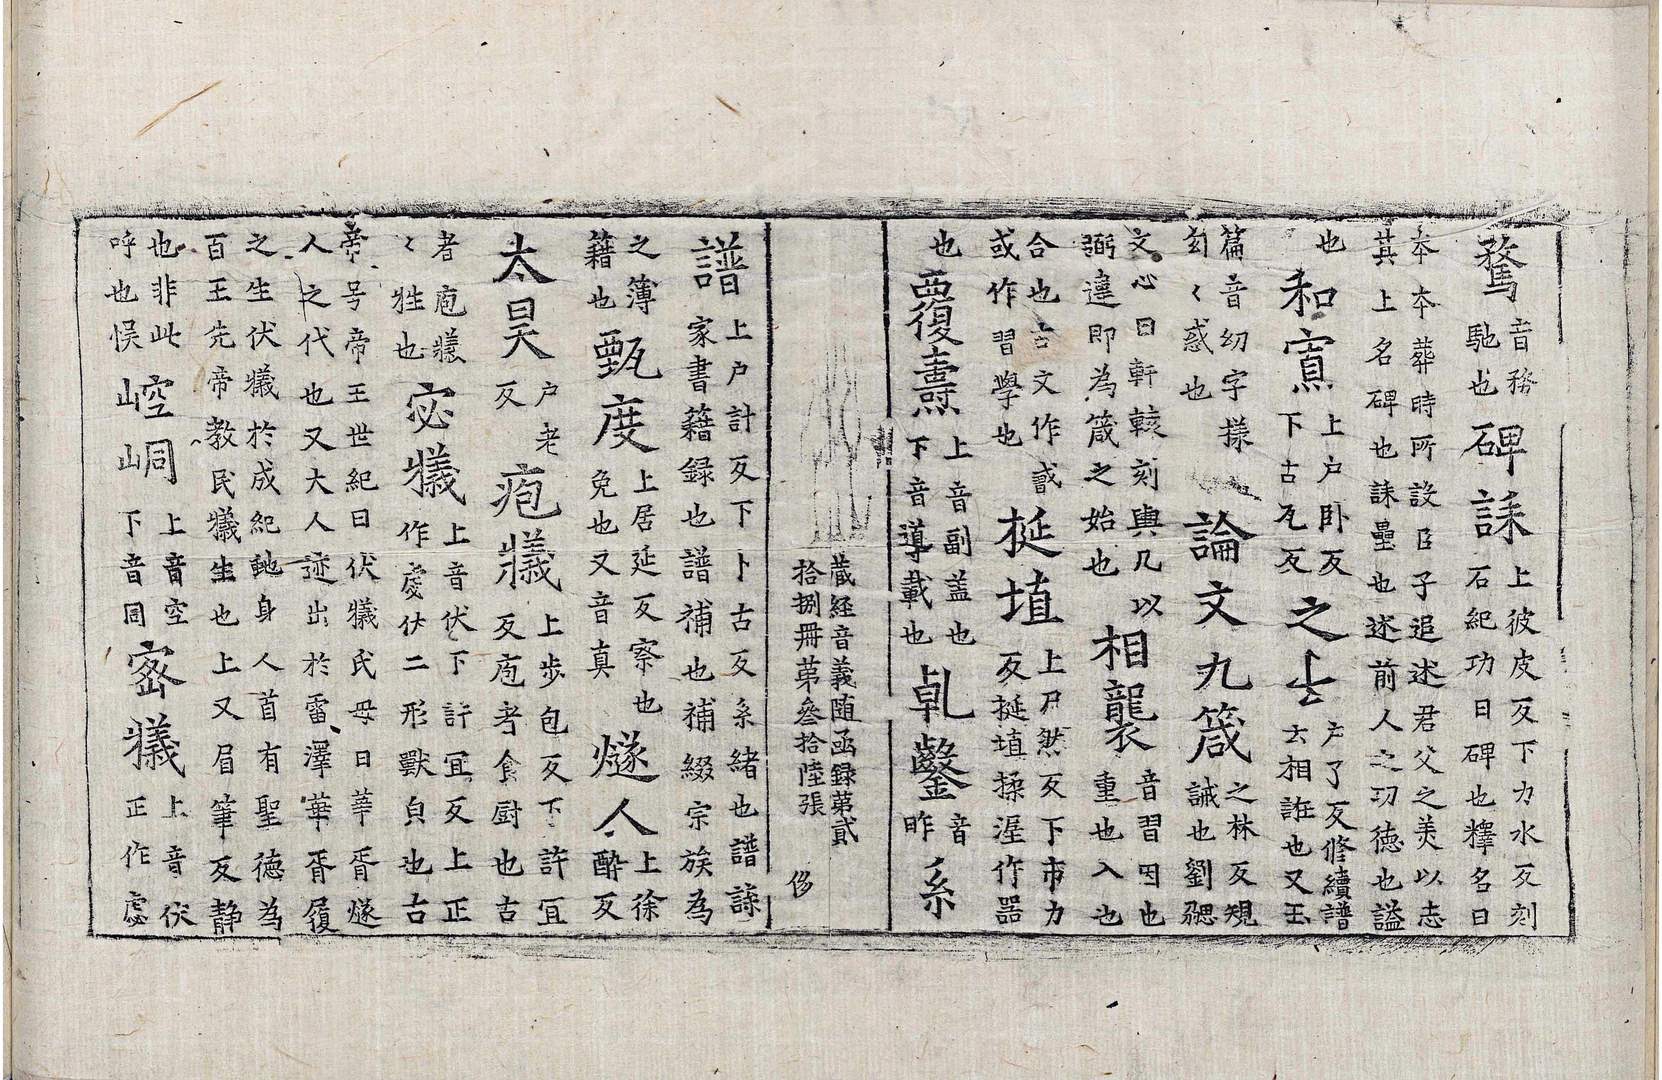 騖音務馳也碑誄上彼皮反下力水反刻石紀功曰碑也釋名曰
本本葬時所設臣子追述君父之美以志其上名碑也誄壘也述前人之功德也謚
也和㝔上户卧反下古瓦反之上户了反修續譜去相誑也又玉
篇音幻字㨾〻惑也論文九箴之林反規誡也劉勰
文心曰軒轅刻輿几以弼違即為箴之始也相襲音習因也重也入也
合也古文作戠或作習學也挻埴上尸然反下市力反挻埴揉渥作器
也覆燾上音副盖也下音導載也乹鑿音昨系
藏経音義随函録第貳
拾捌冊苐叅拾陸張 侈
譜上户計反下卜古反系緒也譜諜家書籍録也譜補也補綴宗族為
之簿籍也甄度上居延反察也免也又音真燧人上徐醉反
太昊户老反疱犠上步包反下許冝反庖者食厨也古
者庖犠〻牲也宓犠上音伏下許宜反上正作虙伏二形獸皃也古
帝号帝王世紀曰伏犠氏母曰華胥燧人之代也又大人迹出於雷澤華胥履
之生伏犠於成紀虵身人首有聖德為百王先帝教民犠生也上又眉筆反静
也非此呼也悮崆峒上音空下音同宻犠上音伏正作虙